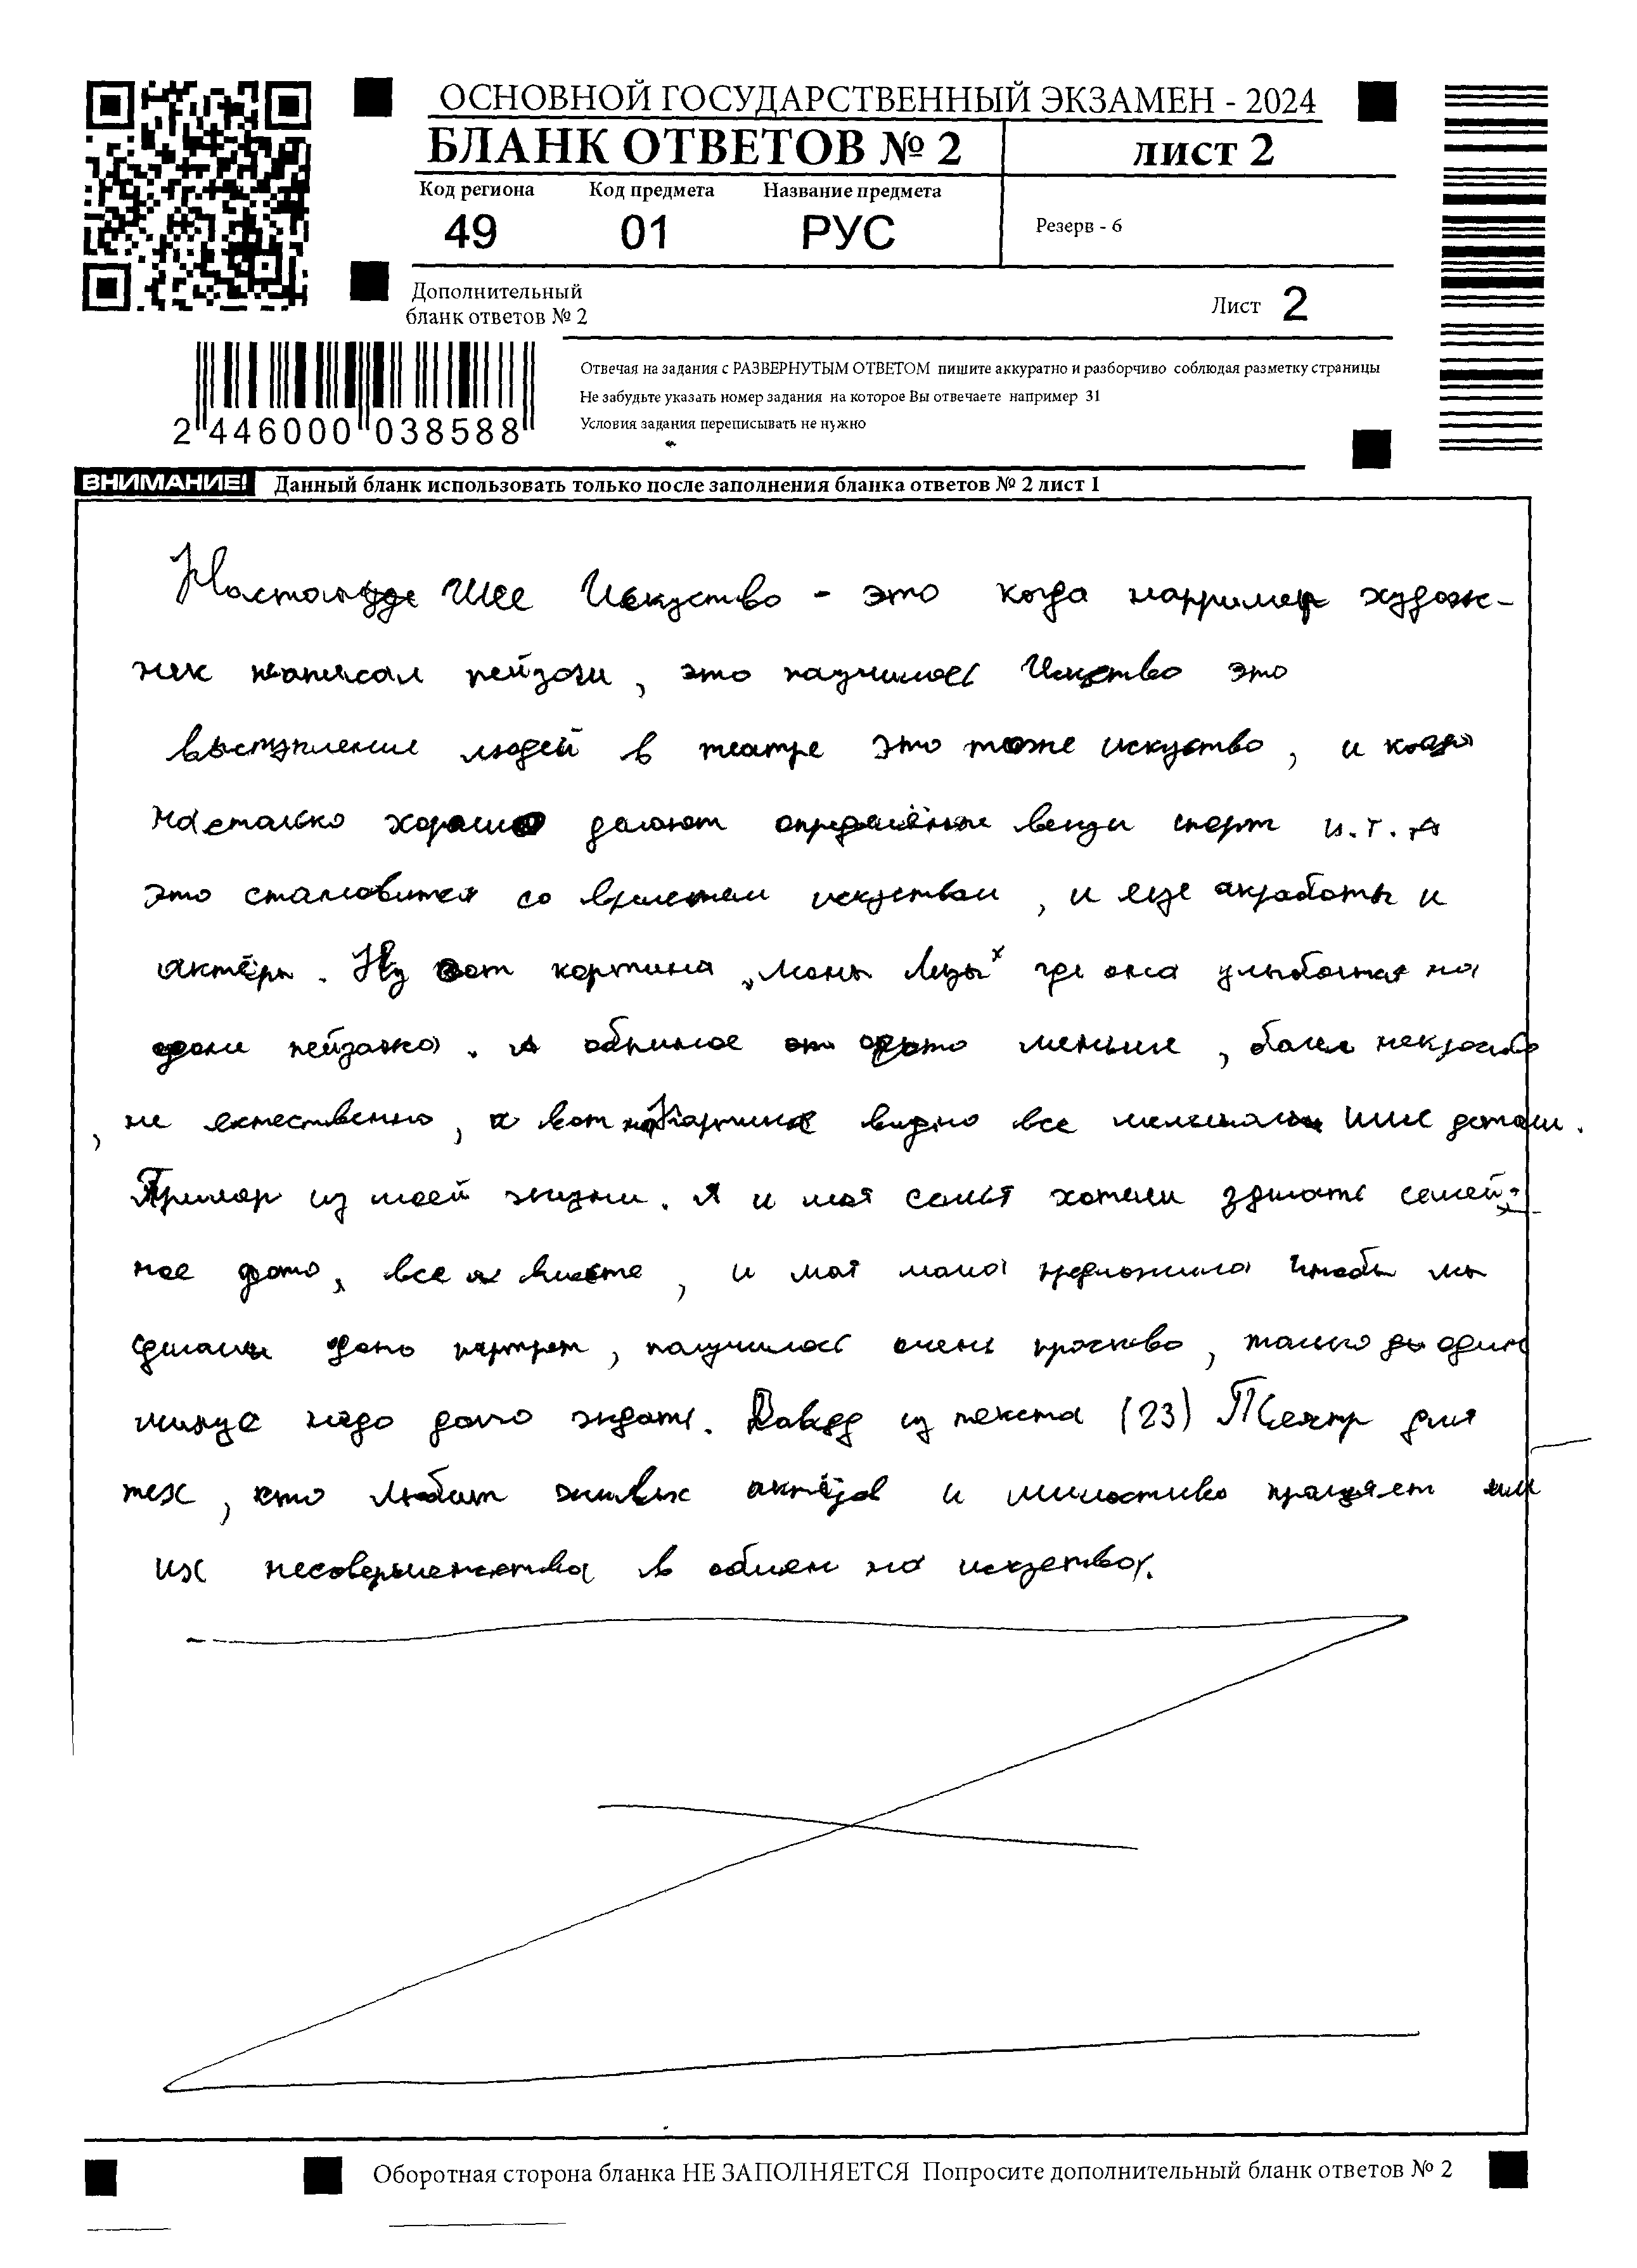 ОСНОВНОЙ ГОСУДАРСТВЕННЫЙ ЭКЗАМЕН - 2024
БЛАНК ОТВЕТОВ № 2
ЛИСТ 2
Код региона Код предмета Название предмета
49 01 РУС
Резерв - 6
Дополнительный
бланк ответов № 2
Лист 2
Отвечая на задания с РАЗВЕРНУТЫМ ОТВЕТОМ пишите аккуратно и разборчиво соблюдая разметку страницы
Не забудьте указать номер задания на которое Вы отвечаете например 31
Условия задания переписывать не нужно
2 446000 038588
ВНИМАНИЕ! Данный бланк использовать только после заполнения бланка ответов № 2 лист 1
Искуство - это когда например худож-
ник написал пейзаж, это получилось Искуство это
выступление людей в театре это тоже искуство, и когда
настолько хорошо делают определёные вещи спорт и.т.д
это становится со временем искуством, и еще акработы и
актёры. Ну вот картина „Моны Лизы" где она улыбается на
фоне пейзажа. А обычное фото меньше, более некрасиво
, не естественно, а вот на Картине видно все детали.
Пример из моей жизни. Я и моя семья хотели зделать семей-
ное фото, все вместе, и моя мама предложила чтобы мы
сделали фото портрет, получилось очень красиво, только один
минус надо долго ждать. Довод из текста (23) Театр для
тех, кто любит живых актёров и милостиво прощает им
их несовершенства в обмен на искуство.
Оборотная сторона бланка НЕ ЗАПОЛНЯЕТСЯ Попросите дополнительный бланк ответов № 2